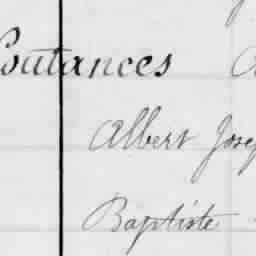 Coutances
Albert Josep
Baptiste